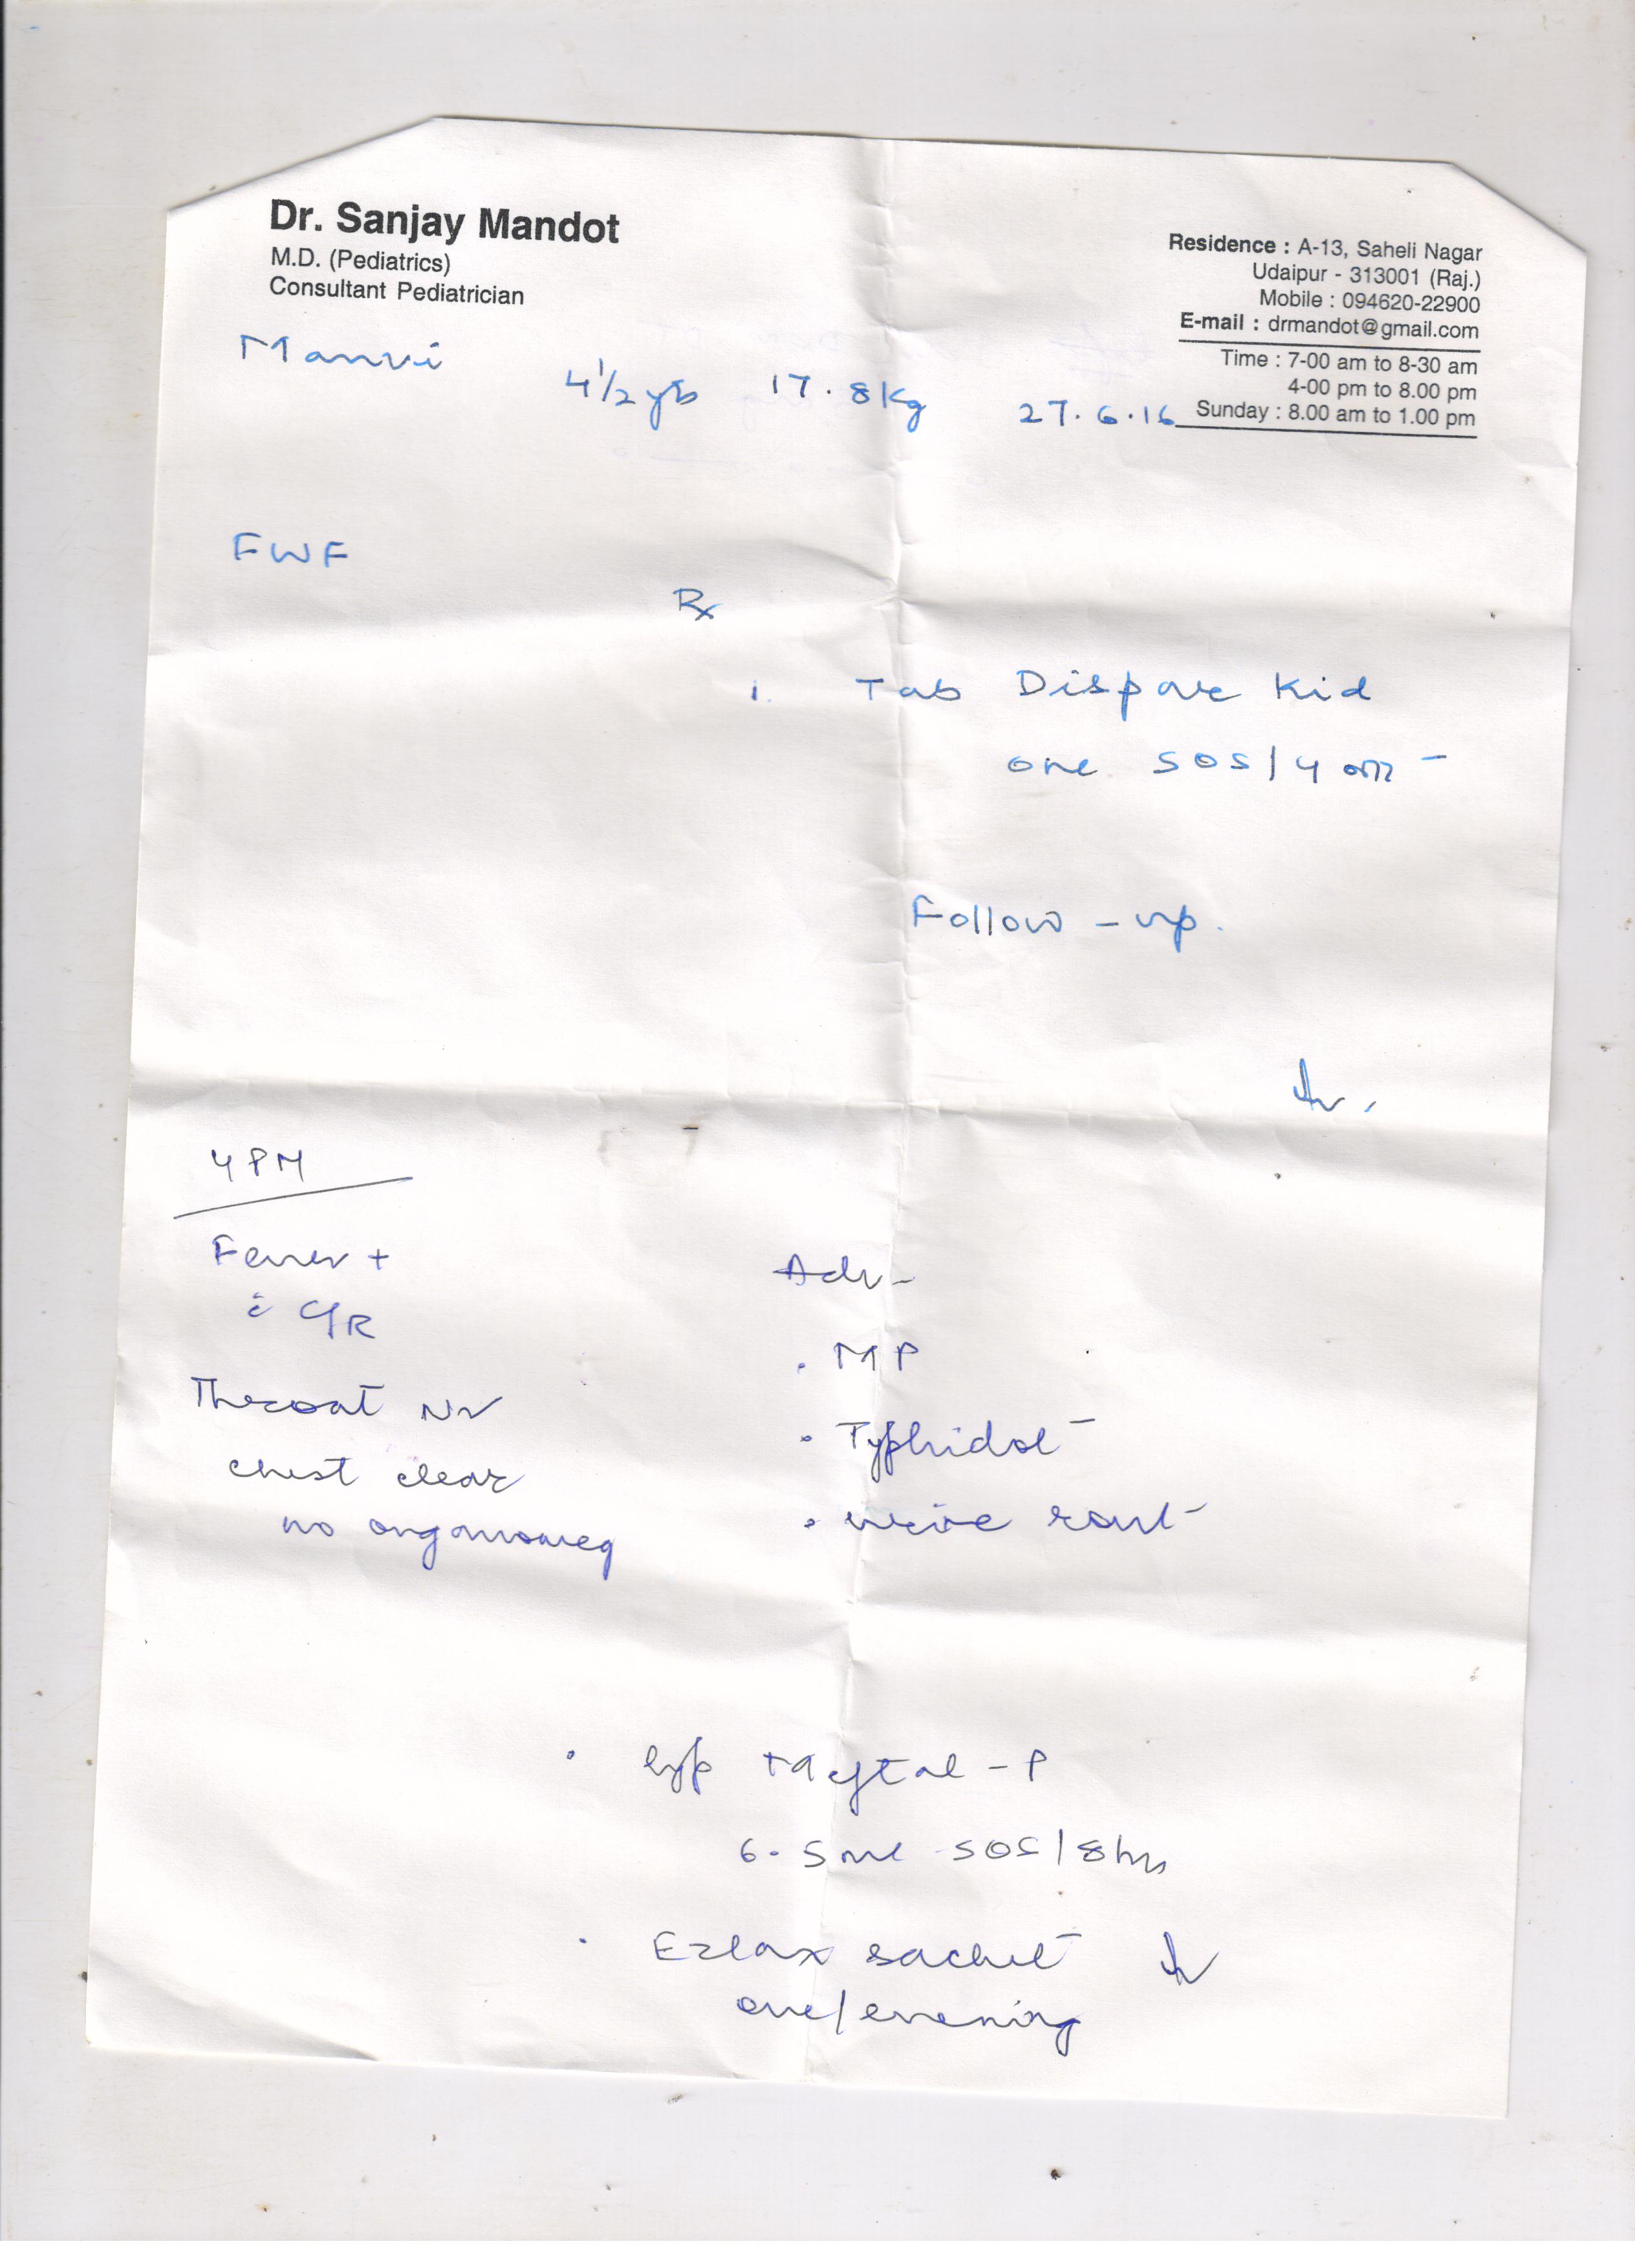 Dr. Sanjay Mandot
M.D. (Pediatrics)
Consultant Pediatrician
Residence : A-13, Saheli Nagar
Udaipur - 313001 (Raj.)
Mobile : 094620-22900
E-mail : drmandot@gmail.com
Time : 7-00 am to 8-30 am
4-00 pm to 8.00 pm
Sunday : 8.00 am to 1.00 pm
Manvi 4½ yrs 17.8 kg 27.6.16
FWF
Rx
1. Tab Dispar Kid
one SOS/4
Follow-up.
4 PM
Fever +
c̄ C/R
Throat
chest clear
no organomeg
Adv-
. MP
. Typhidot
. urine rout
. Syp - P
6.5 ml SOS/8 hrs
. Ezlax sachet
one/evening